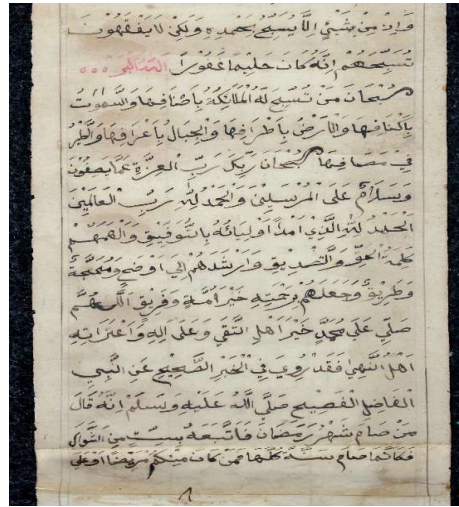 وَاِنْ مِنْ شَيْئٍ اِلَّا يُسَبِّحُ بِحَمْدِهِ وَلٰكِنْ لَا يَفْقَهُونَ
تَسْبِيحَهُمْ اِنَّهُ كَانَ حَلِيمًا غَفُورًا
سُبْحَانَ مَنْ تُسَبِّحُ لَهُ الْمَلَائِكَةُ بِاَصْنَافِهَا وَالسَّمٰوٰتُ
بِاَكْنَافِهَا وَالْاَرْضُ بِاَطْرَافِهَا وَالْجِبَالُ بِاَعْرَافِهَا وَالطَّيْرُ
فِي مَصَافِهَا سُبْحَانَ رَبِّكَ رَبِّ الْعِزَّةِ عَمَّا يَصِفُونَ
وَسَلَامٌ عَلَى الْمُرْسَلِينَ وَالْحَمْدُ لِلّٰهِ رَبِّ الْعَالَمِينَ
اَلْحَمْدُ لِلّٰهِ الَّذِي اَمَدَّ اَوْلِيَائَهُ بِالتَّوْفِيقِ وَاَلْهَمَهُمْ
كَلِمَةَ الْحَقِّ وَالتَّصْدِيقِ وَاَرْشَدَهُمْ اِلَى اَوْضَحِ مَحَجَّةٍ
وَطَرِيقٍ وَجَعَلَهُمْ بِرَحْمَتِهِ خَيْرَ اُمَّةٍ وَفَرِيقٍ اَللّٰهُمَّ
صَلِّي عَلَى مُحَمَّدٍ خَيْرِ اَهْلِ التُّقَي وَعَلَى اٰلِهِ وَ
اَهْلِ النُّهَي فَقَدْ رُوِيَ فِي الْخَبَرِ الصَّحِيحِ عَنِ النَّبِي
الْفَاضِلِ الْفَصِيحِ صَلَّي اللّٰهُ عَلَيْهِ وَسَلَّمْ اِنَّهُ قَالَ
مَنْ صَامَ شَهْرَ رَمَضَانَ فَاَتْبَعَهُ بِسِتٍّ مِنَ الشَّوَّالِ
فَكَاَنَّمَا صَامَ سَنَةً كُلَّهَا فَمَنْ كَانَ مِنْكُمْ مَرِيضًا اَوْ عَلَى